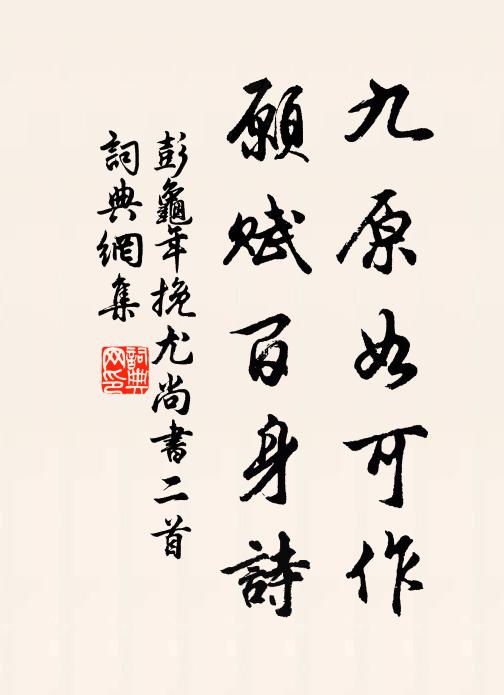 九原如可作
願賦百身詩
彭龜年挽尤尚書二首
詞典網集
詞典
网印